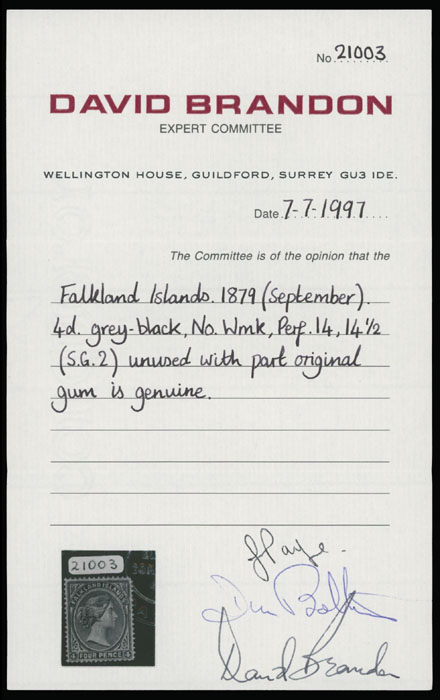 No. 21003
DAVID BRANDON
EXPERT COMMITTEE
WELLINGTON HOUSE, GUILDFORD, SURREY GU3 1DE.
Date 7-7-1997
The Committee is of the opinion that the
Falkland Islands. 1879 (September).
4d. grey-black, No. Wmk, Perf. 14, 14½
(S.G. 2) unused with part original
gum is genuine.
21003
FALKLAND ISLANDS
4 FOUR PENCE 4
David Brandon